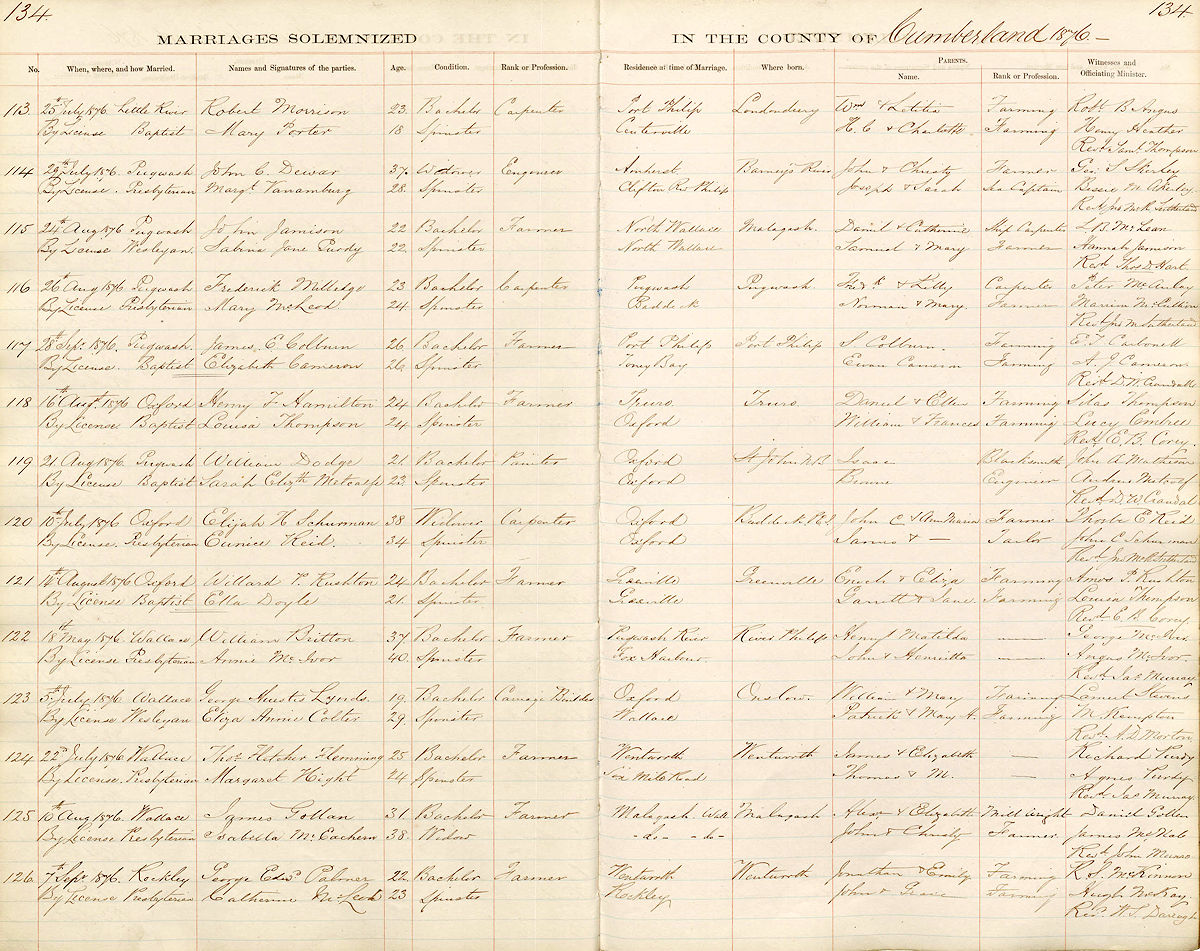 134.
134.
MARRIAGES SOLEMNIZED IN THE COUNTY OF Cumberland 1876 —
No. When, where, and how Married. Names and Signatures of the parties. Age. Condition. Rank or Profession. Residence at time of Marriage. Where born. PARENTS. Name. Rank or Profession. Witnesses and Officiating Minister.
113 25th July 1876 Little River Robert Morrison 23 Bachelor Carpenter Port Philip Londonderry Wm & Letitia Farming Robt B. Angus
By License Baptist Mary Porter 18 Spinster Centerville H. C & Charlotte Farming Henry Heather
Revd Saml Thompson
114 July 1876 Pugwash John C. Dewar 37 Widower Engineer Amherst Barney's River John & Christy Farmer Geo. S
By License. Presbyterian Margt Vanamburg 28 Spinster Clifton Rv Philip Joseph & Sarah Sea Captain Bessie M.
Revd Jno McK. Sutherland
115 24th Aug 1876 Pugwash John Jamison 22 Bachelor Farmer North Wallace Malagash Daniel & Catherine Ship Carpenter McLean
By License Wesleyan. Sabina Jane Purdy 22 Spinster North Wallace Samuel & Mary Farmer Hannah Jamison
Revd Thos D. Hart
116 26th Aug 1876 Pugwash Frederick Milledge 23 Bachelor Carpenter Pugwash Pugwash Fredk & Carpenter Peter McAulay
By License Presbyterian Mary McLeod 24 Spinster Baddeck Norman & Mary Farmer
Revd Jno M Sutherland
117 28th Sept. 1876. Pugwash. James C Colburn 26 Bachelor Farmer Port Philip Port Philip S. Colburn. Farming E. T.
By License. Baptist Elizabeth Cameron 26 Spinster Toney Bay Ewan Cameron Farming A. J. Cameron
Revd D. W. Crandall
118 16th Augt 1876 Oxford Henry F Hamilton 24 Bachelor Farmer Truro Truro Daniel & Ellen Farming Silas Thompson
By License Baptist Louisa Thompson 24 Spinster Oxford William & Frances Farming Lucy Embree
Revd E. B. Corey
119 21 Aug 1876. Pugwash William Dodge 21 Bachelor Painter Oxford St John N.B. Isaac Blacksmith John A Matheson
By License Baptist Sarah Elizth Metcalfe 23 Spinster Oxford Engineer
Revd D. W Crandall
120 10th July 1876 Oxford Elijah H Schurman 38 Widower Carpenter Oxford John C & Ann Maria Farmer E Reid
By License. Presbyterian Eunice Reid. 34 Spinster Oxford James & — Tailor John C Schurman
Revd Jno McK Sutherland
121 14th August 1876 Oxford Willard P. Rushton 24 Bachelor Farmer Greenville Enoch & Eliza Farming Amos P. Rushton
By License Baptist Ella Doyle 21 Spinster Garrett & Jane Farming Louisa Thompson
Revd E. B. Corey
122 18th May 1876 Wallace William Britton 37 Bachelor Farmer Pugwash River River Philip Henry & Matilda — George
By License Presbyterian Annie McIvor 40. Spinster Fox Harbour. John & Henrietta — Angus McIvor.
Revd Jas Murray
123 5th July 1876 Wallace George Huestis Lynds. 19 Bachelor Carriage Builder Oxford Onslow. William & Mary Farming Stevens
By License Wesleyan Eliza Annie Colter 29 Spinster Wallace Patrick & Mary A. Farming M. Kempton
Revd A. D. Morton
124 22d July 1876 Wallace Thos Fletcher Flemming 25 Bachelor Farmer Wentworth Wentworth James & Elizabeth — Richard Purdy
By License. Presbyterian Margaret Hight 24 Spinster Six Mile Road Thomas & M. — Agnes Purdy
Revd Jas Murray
125 10th Aug 1876 Wallace James Gollan 31. Bachelor Farmer Malagash. Malagash Alexr & Elizabeth Daniel Gollan
By License Presbyterian Isabella McEachern 38. Widow -do- -do- John & Christy Farmer James McNab
Revd John Munro
126 7th Sept 1876. Rockley George Edwd Palmer 22 Bachelor Farmer Wentworth Wentworth Jonathan & Emily Farming McKinnon
By License Presbyterian Catherine McLeod 23 Spinster Rockley John & Farming Hugh McKay
Revd W. S. Darragh